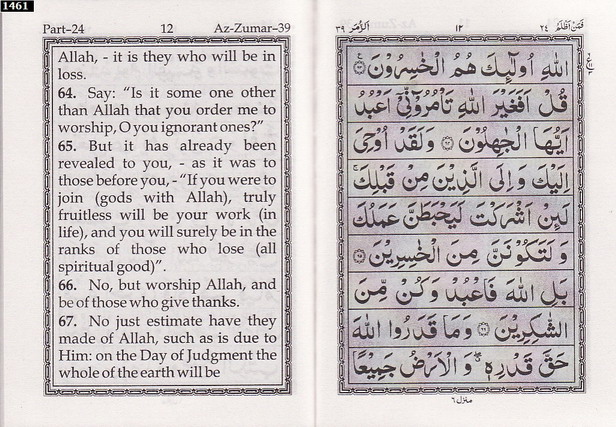 1461
Part–24 12 Az-Zumar–39
Allah, - it is they who will be in
loss.
64. Say: “Is it some one other
than Allah that you order me to
worship, O you ignorant ones?”
65. But it has already been
revealed to you, - as it was to
those before you, - “If you were to
join (gods with Allah), truly
fruitless will be your work (in
life), and you will surely be in the
ranks of those who lose (all
spiritual good)”.
66. No, but worship Allah, and
be of those who give thanks.
67. No just estimate have they
made of Allah, such as is due to
Him: on the Day of Judgment the
whole of the earth will be
فَمَنْ اَظْلَمُ ٢٤ ١٢ اَلزُّمَر ٣٩
اللّٰهِ اُولٰٓئِكَ هُمُ الْخٰسِرُوْنَ ۝٦٣
قُلْ اَفَغَيْرَ اللّٰهِ تَاْمُرُوْٓنِّيْٓ اَعْبُدُ
اَيُّهَا الْجٰهِلُوْنَ ۝٦٤ وَلَقَدْ اُوْحِيَ
اِلَيْكَ وَاِلَى الَّذِيْنَ مِنْ قَبْلِكَ ۚ
لَىِٕنْ اَشْرَكْتَ لَيَحْبَطَنَّ عَمَلُكَ
وَلَتَكُوْنَنَّ مِنَ الْخٰسِرِيْنَ ۝٦٥
بَلِ اللّٰهَ فَاعْبُدْ وَكُنْ مِّنَ
الشّٰكِرِيْنَ ۝٦٦ وَمَا قَدَرُوا اللّٰهَ
حَقَّ قَدْرِهٖ ۖ وَالْاَرْضُ جَمِيْعًا
منزل ٦